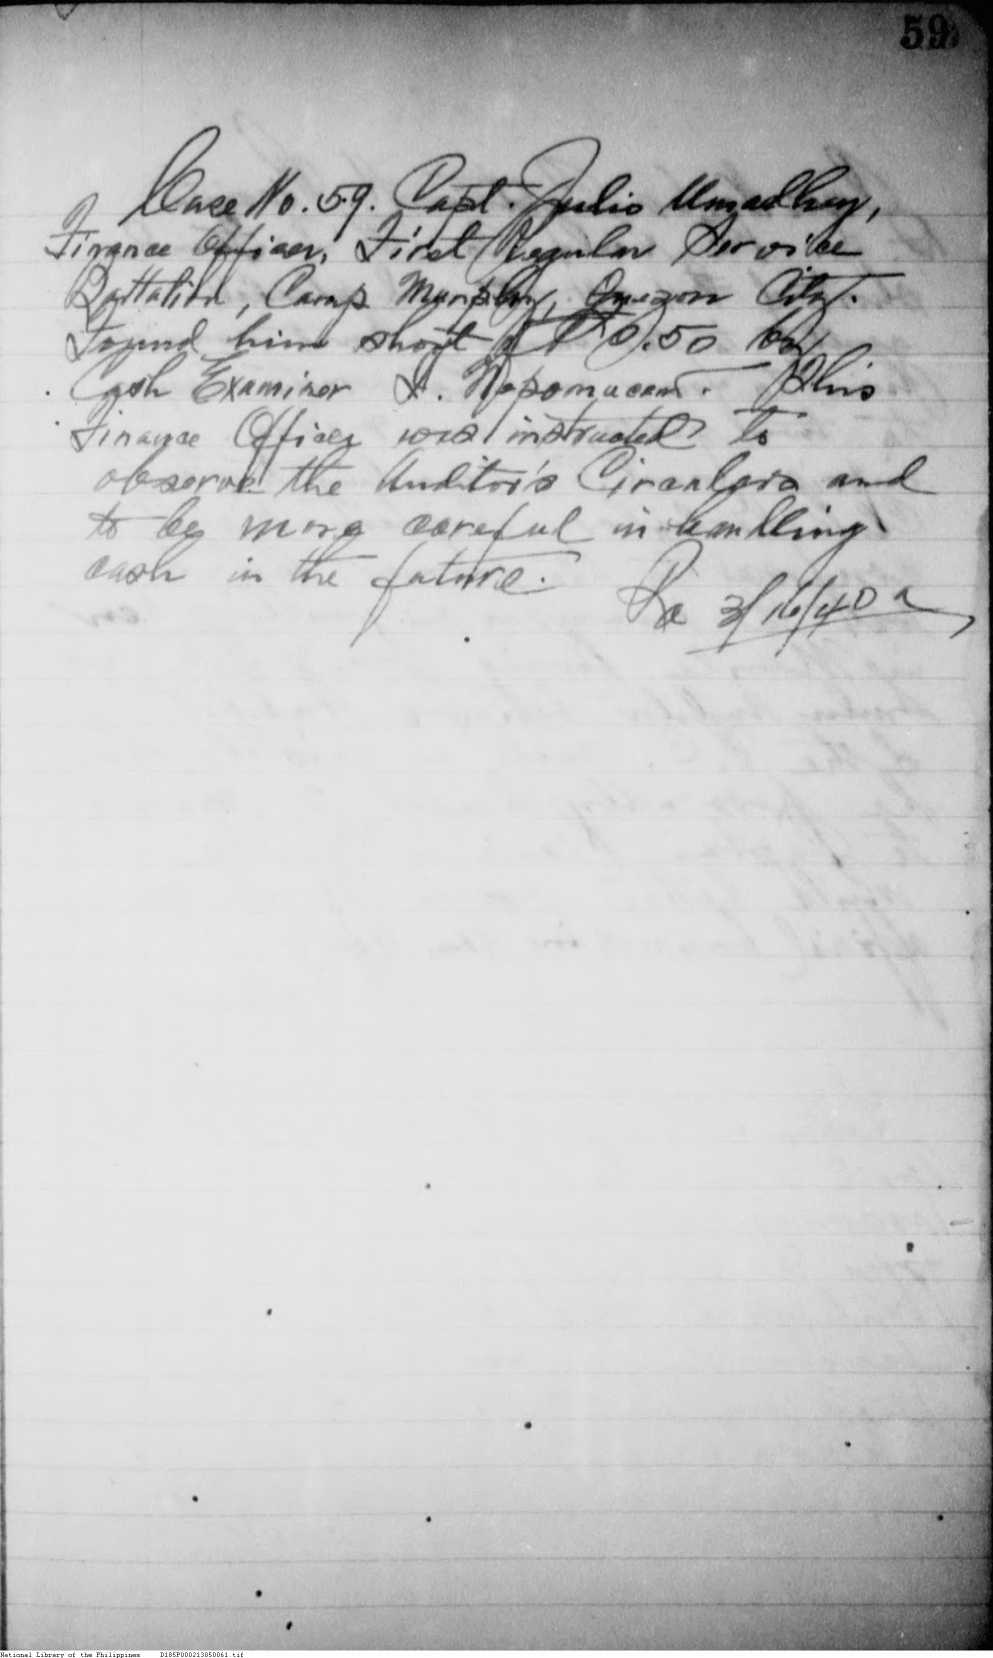 59
Case No. 59. Capt. Julio Umadhay,
Finance Officer, First Regular Service
Battalion, Camp Murphy, Quezon City.
Found him short of ₱0.50 by
Cash Examiner Nepomuceno. This
Finance Officer was instructed to
observe the Auditor's Circulars and
to be more careful in handling
cash in the future.
3/16/40
National Library of the Philippines D185P000213850061.tif